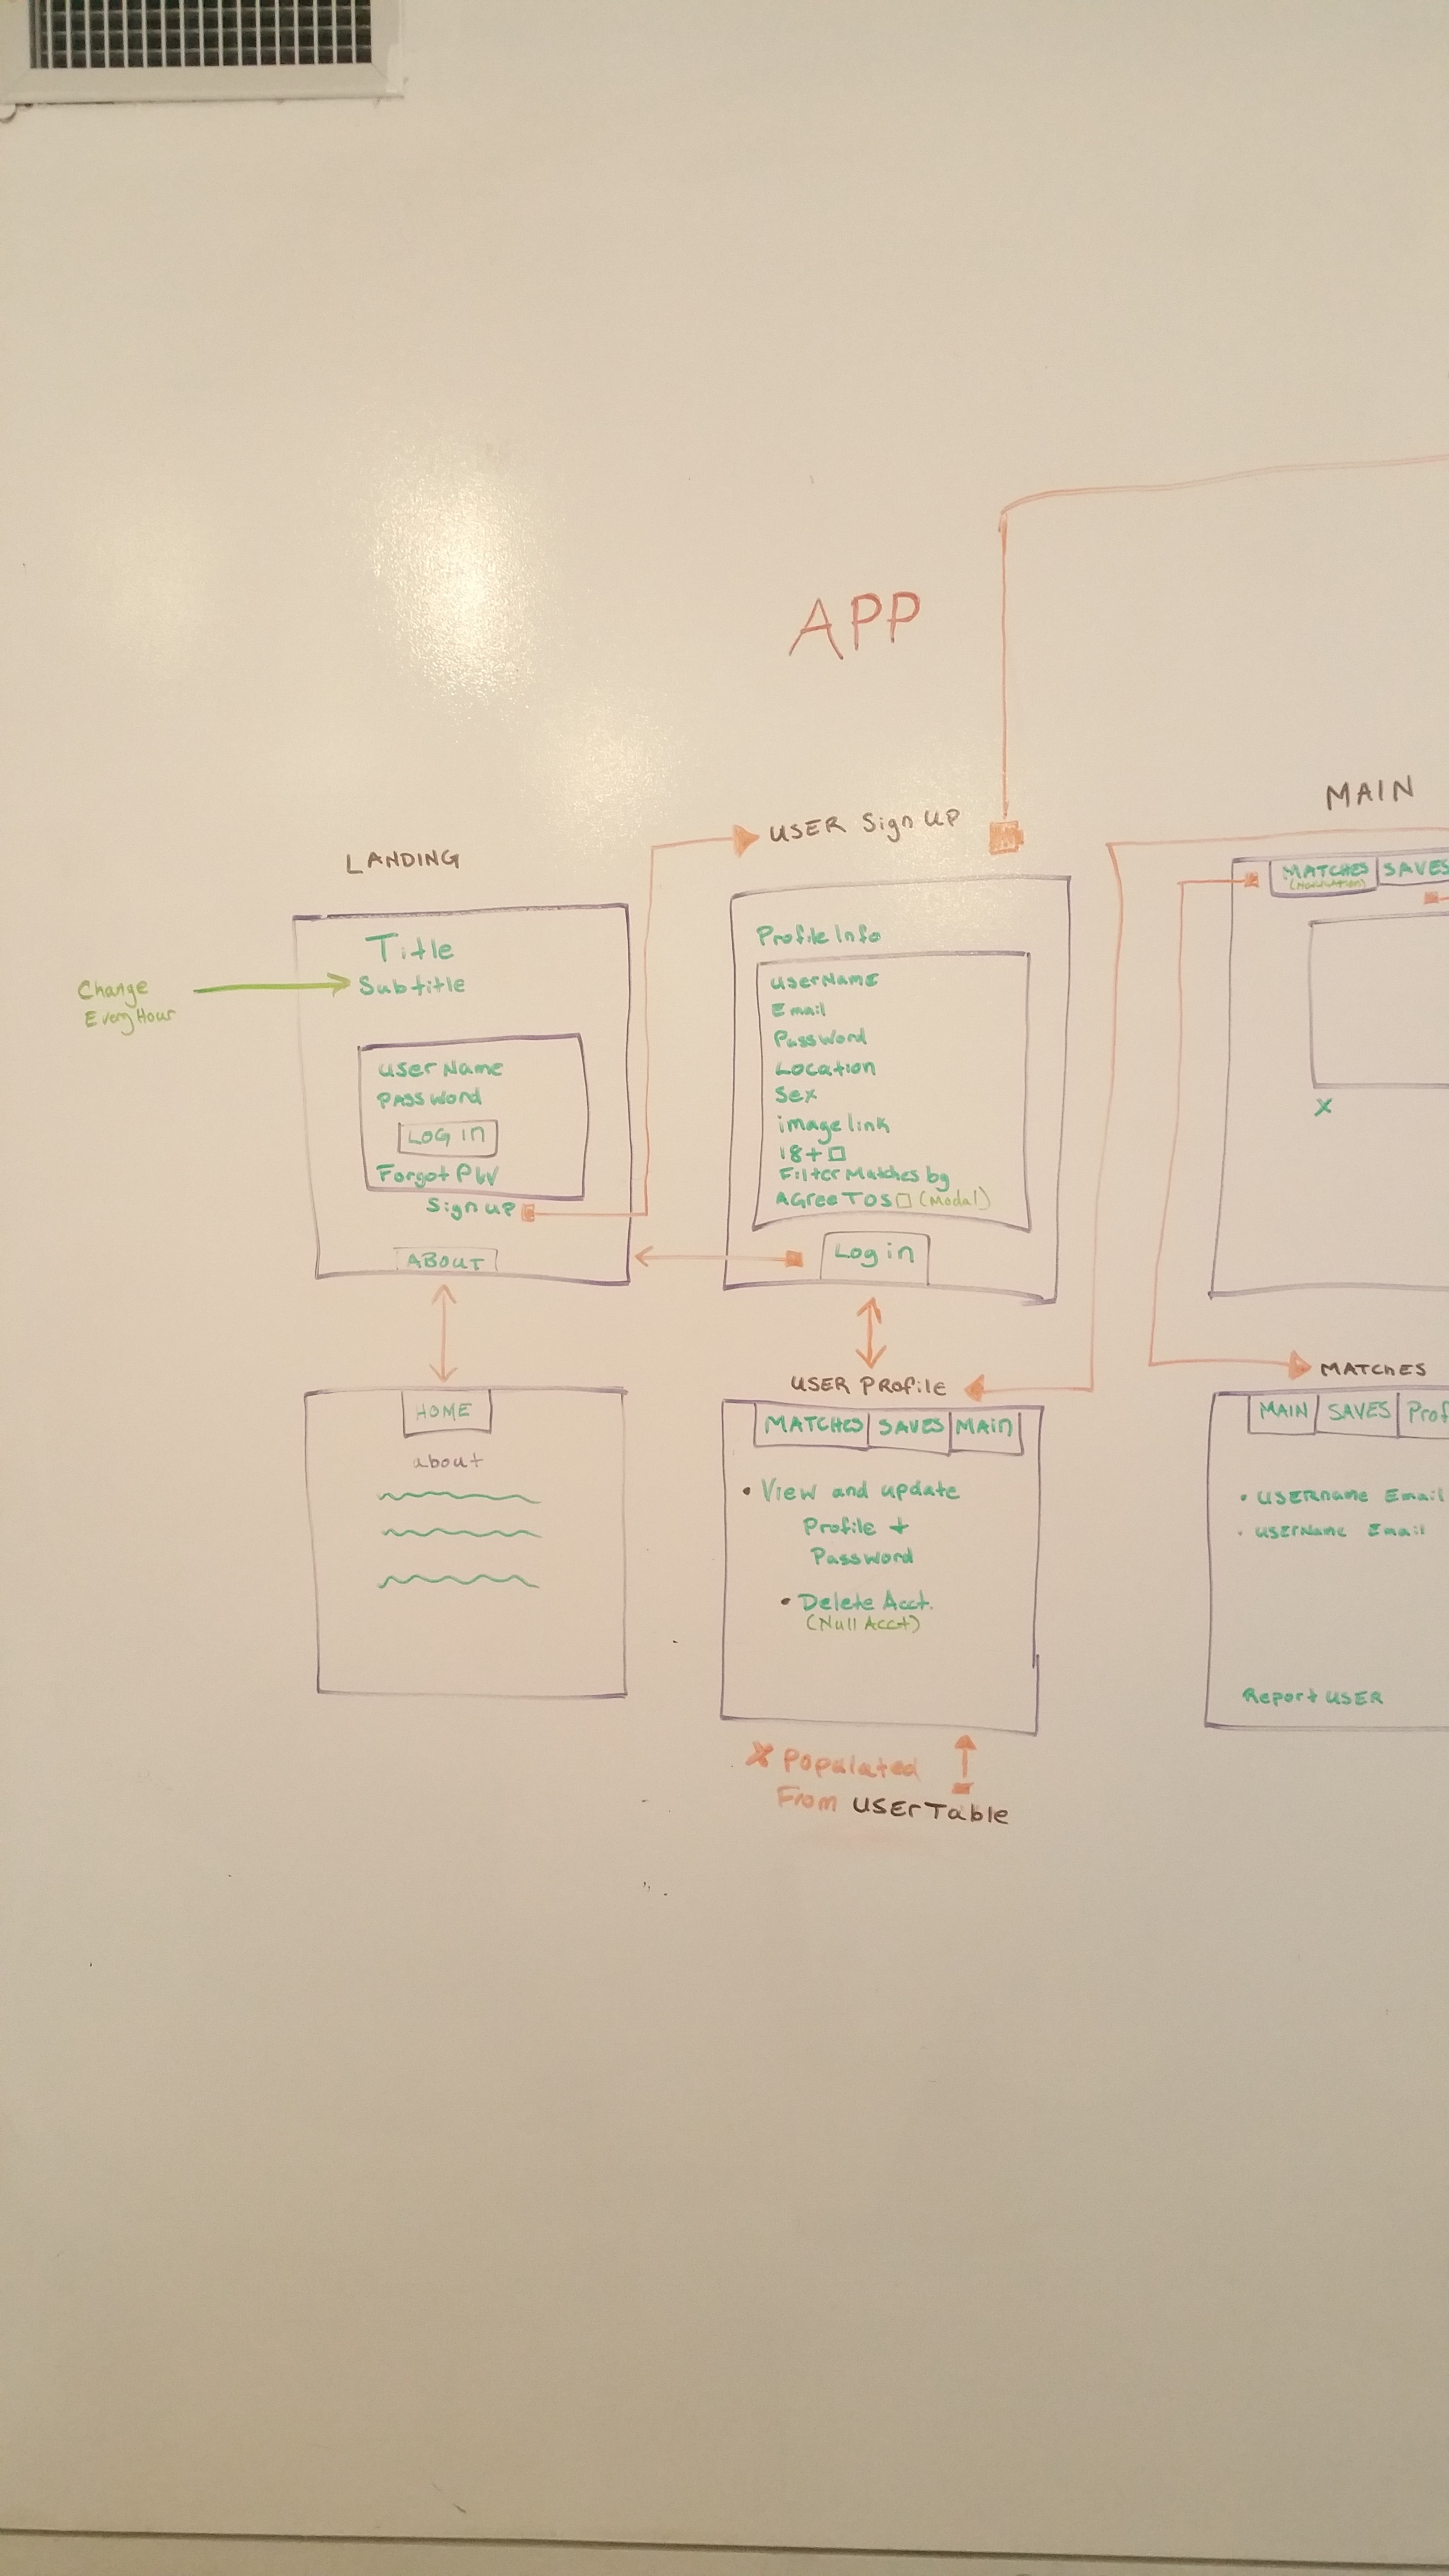 APP
LANDING
Title
Subtitle
Change
Every Hour
user Name
PASS word
LOG in
Forgot PW
Sign up
ABOUT
HOME
about
USER Sign UP
Profile Info
userName
Email
Password
Location
Sex
image link
18+ □
Filter Matches by
AGree TOS □ (Modal)
Log in
USER PROfile
MATCHES SAVES MAin
• View and update
Profile +
Password
• Delete Acct.
(Null Acct)
X Populated
From USErTable
MAIN
MATCHES SAVES
X
MATCHES
MAIN SAVES Prof
• USERname Email
• USErName Email
Report USER